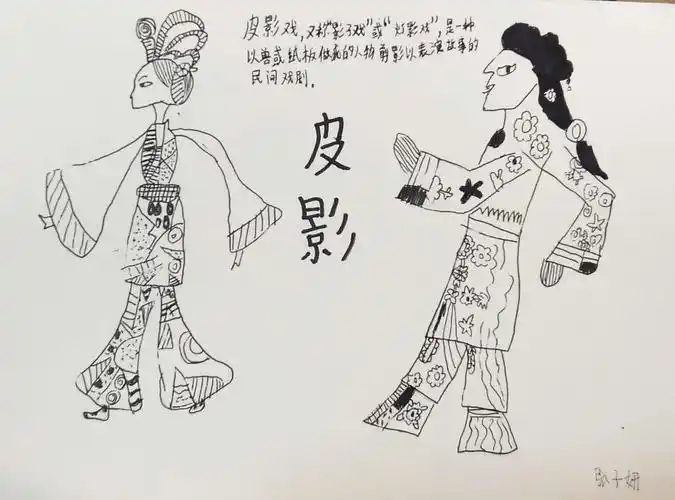 皮影戏,又称"影子戏"或"灯影戏",是一种
以兽或纸板做成的人物剪影以表演故事的
民间戏剧.
皮
影